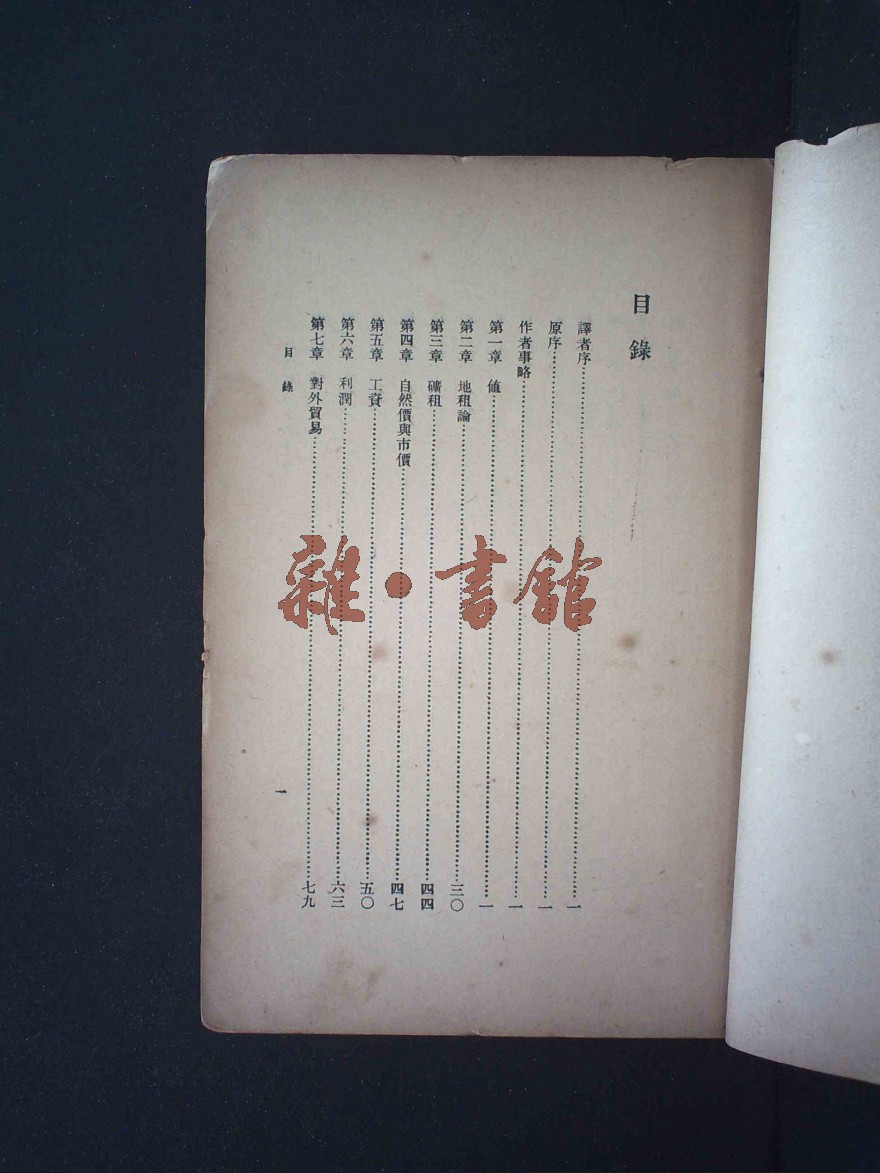 目錄
譯者序……一
原序……一
作者事略……一
第一章 值……一
第二章 地租論……三〇
第三章 礦租……四四
第四章 自然價與市價……四七
第五章 工資……五〇
第六章 利潤……六三
第七章 對外貿易……七九
目錄
一
雜·書館